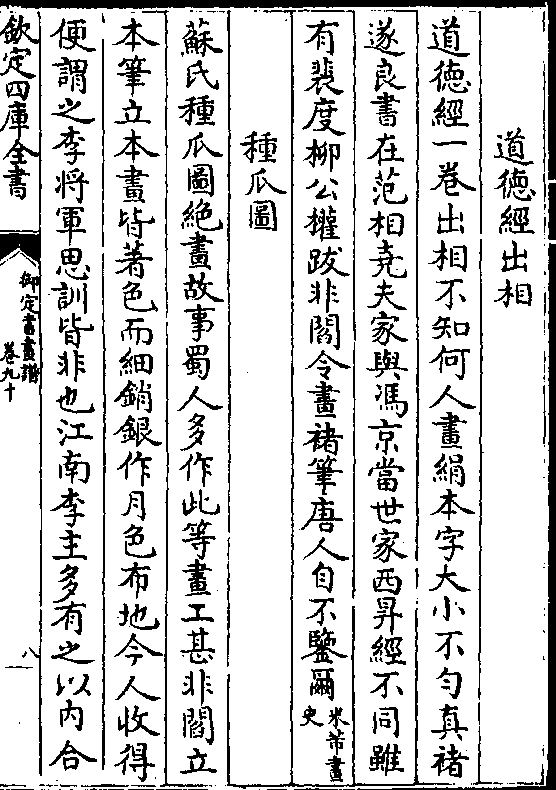 道德經出相
道德經一卷出相不知何人畫絹本字大小不勻真褚
遂良書在范相堯夫家與馮京當世家西昇經不同雖
有裴度柳公權跋非閻令畫褚筆唐人自不鑒爾米芾畫
史
種瓜圖
蘇氏種瓜圖絕畫故事蜀人多作此等畫工甚非閻立
本筆立本畫皆著色而細銷銀作月色布地今人收得
便謂之李將軍思訓皆非也江南李主多有之以内合
欽定四庫全書
御定書畫譜
卷九十
八